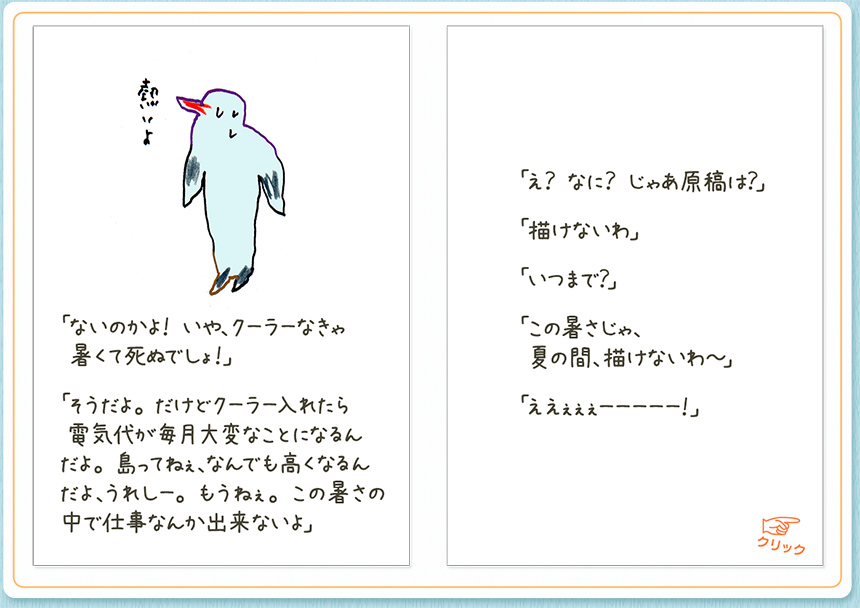 熱いよ
「ないのかよ! いや、クーラーなきゃ
暑くて死ぬでしょ!」
「そうだよ。だけどクーラー入れたら
電気代が毎月大変なことになるん
だよ。島ってねぇ、なんでも高くなるん
だよ、うれしー。もうねぇ。この暑さの
中で仕事なんか出来ないよ」
「え? なに? じゃあ原稿は?」
「描けないわ」
「いつまで?」
「この暑さじゃ、
夏の間、描けないわ〜」
「ええぇぇぇーーーーー!」
クリック